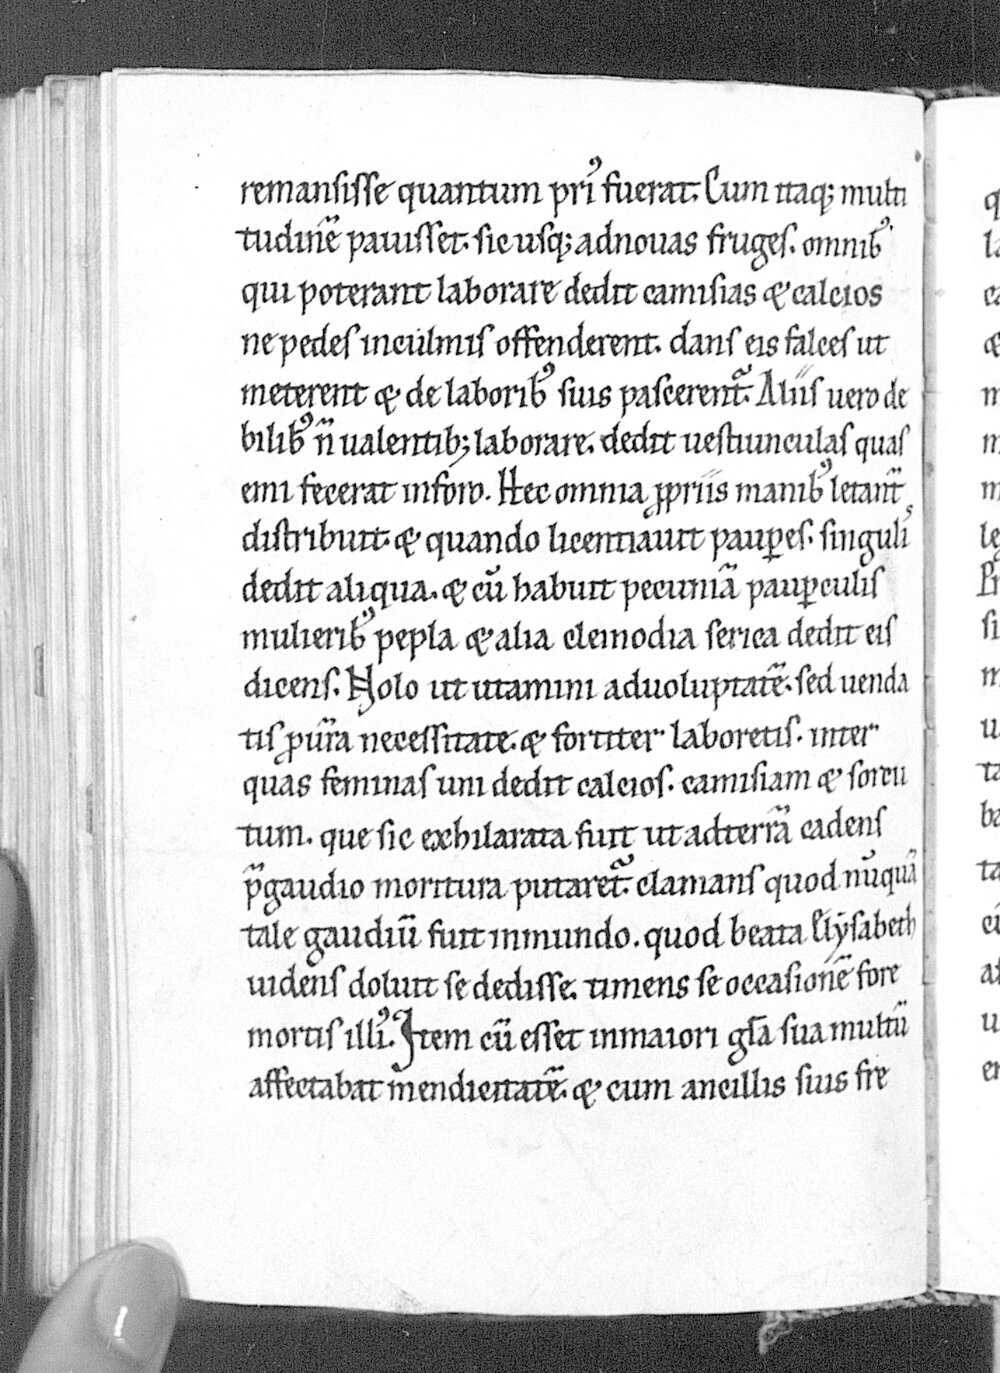 remansisse quantum priꝰ fuerat. Cum itaq; multi
tudinē pauisset. sic usq; adnouas fruges. omnibꝰ
qui poterant laborare dedit camisias & calcios
ne pedes inculmis offenderent. dans eis falces ut
meterent & de laboribꝰ suis pascerent᷑. Aliis uero de
bilibꝰ n̄ ualentib; laborare. dedit uestiunculas quas
emi fecerat inforo. Hec omnia ꝓpriis manibꝰ letant᷑
distribuit. & quando licentiauit pauꝑes. singulꝰ
dedit aliqua. & cū habuit pecuniā pauꝑculis
mulieribꝰ pepla & alia cleinodia serica dedit eis
dicens. Nolo ut utamini aduoluptatē. sed uenda
tis ꝓ ur̄a necessitate. & fortiter laboretis. inter
quas feminas uni dedit calcios. camisiam & soccu
tum. que sic exhilarata fuit ut adterrā cadens
p̄gaudio moritura putaret᷑. clamans quod nūquā
tale gaudiū fuit inmundo. quod beata Elẏsabeth
uidens doluit se dedisse. timens se occasionē fore
mortis illiꝰ. Item cū esset inmaiori gl̄a sua multū
affectabat mendicitatē. & cum ancillis suis fre
q
la
ca
&
m
m
m
le
E
si
m
u
ta
ba
ta
ei
af
u
er